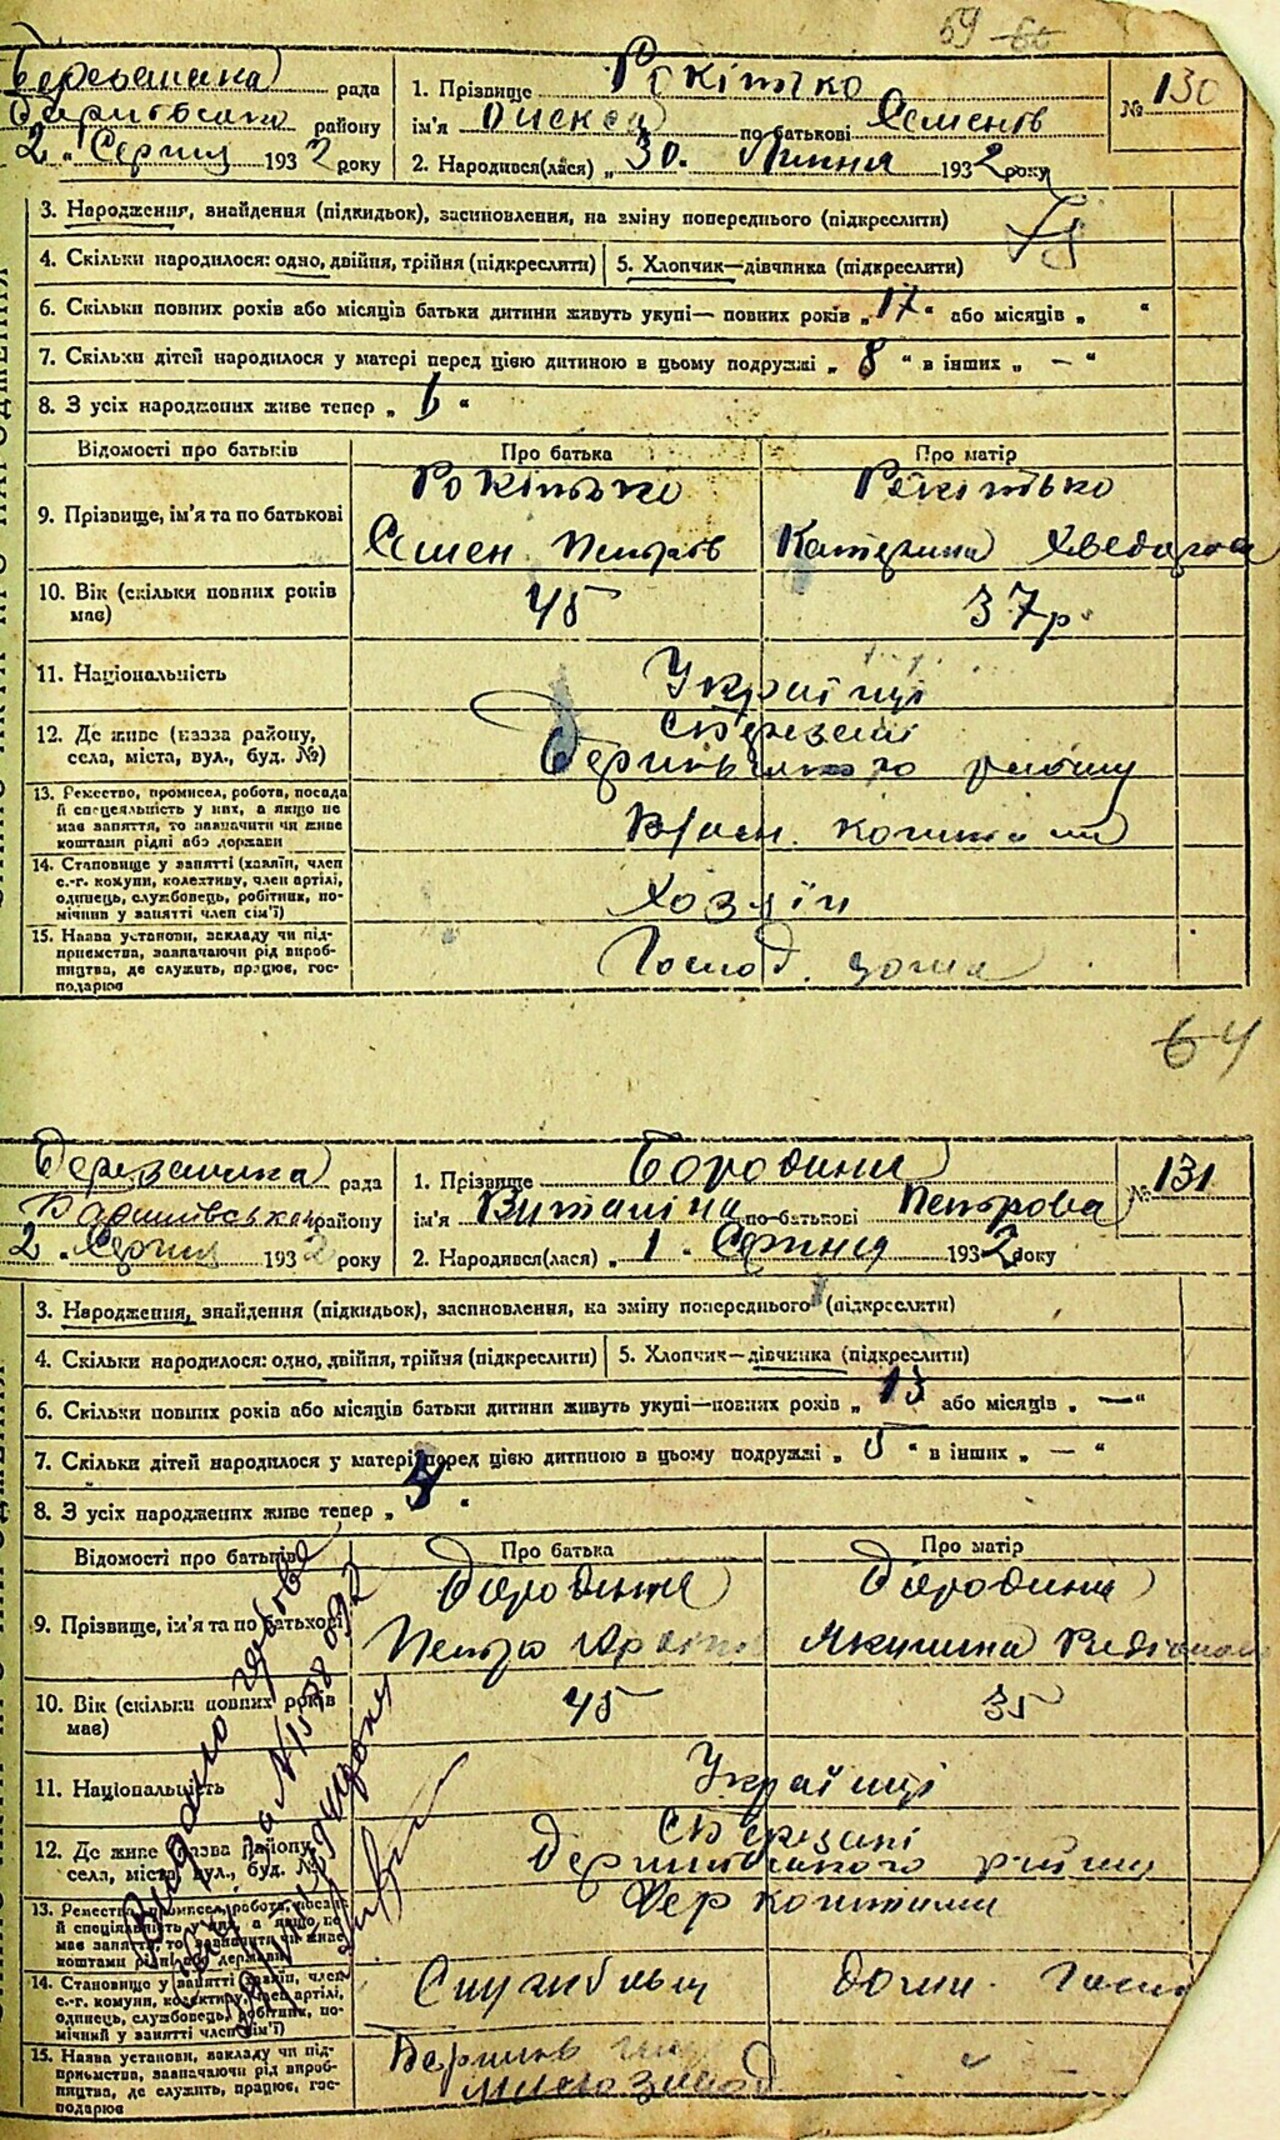 59
Березанська рада
району
2 " Серпня 1932 року
1. Прізвище Рокітько
ім'я Олекса по батькові Семенів
2. Народився(лася) „ 30. Липня 1932 року
№ 130
3. Народження, знайдення (підкидьок), засиновлення, на зміну попереднього (підкреслити)
4. Скільки народилося: одно, двійня, трійня (підкреслити)
5. Хлопчик—дівчинка (підкреслити)
6. Скільки повних років або місяців батьки дитини живуть укупі— повних років „ 17 “ або місяців „ “
7. Скільки дітей народилося у матері перед цією дитиною в цьому подружжі „ 8 “ в інших „ — “
8. З усіх народжених живе тепер „ 6 “
Відомості про батьків
Про батька
Про матір
9. Прізвище, ім'я та по батькові
Рокітько
Семен Петрів
Рокітько
Катерина Хведорова
10. Вік (скільки повних років має)
45
37 р.
11. Національність
Українці
12. Де живе (назва району, села, міста, вул., буд. №)
с Березані
району
13. Ремество, промисел, робота, посада
й спеціяльність у них, а якщо не
має заняття, то зазначити чи живе
коштами рідні або держави
Власн. коштами
14. Становище у занятті (хазяїн, член
с.-г. комуни, колективу, член артілі,
одинець, службовець, робітник, по-
мічний у занятті член сім'ї)
Хозяїн
15. Назва установи, закладу чи під-
приємства, зазначаючи рід вироб-
ництва, де служить, працює, гос-
подарює
Господ. дома
64
Березанська рада
району
2 " Серпня 1932 року
1. Прізвище Бородиня
ім'я Виталіна по батькові Петрова
2. Народився(лася) „ 1. Серпня 1932 року
№ 131
3. Народження, знайдення (підкидьок), засиновлення, на зміну попереднього (підкреслити)
4. Скільки народилося: одно, двійня, трійня (підкреслити)
5. Хлопчик—дівчинка (підкреслити)
6. Скільки повних років або місяців батьки дитини живуть укупі—повних років „ 13 або місяців „ — “
7. Скільки дітей народилося у матері перед цією дитиною в цьому подружжі „ 5 “ в інших „ — “
8. З усіх народжених живе тепер „ “
Відомості про батьків
Про батька
Про матір
9. Прізвище, ім'я та по батькові
Бородиня
Петро
Бородиня
Якилина
10. Вік (скільки повних років має)
45
35
11. Національність
Українці
12. Де живе (назва району, села, міста, вул., буд. №)
с Березані
району
13. Ремество, промисел, робота, посада
й спеціяльність у них, а якщо не
має заняття, то зазначити чи живе
коштами рідні або держави
Дер коштами
14. Становище у занятті (хазяїн, член
с.-г. комуни, колективу, член артілі,
одинець, службовець, робітник, по-
мічний у занятті член сім'ї)
Службовець
дома. Госп
15. Назва установи, закладу чи під-
приємства, зазначаючи рід вироб-
ництва, де служить, працює, гос-
подарює
Видано